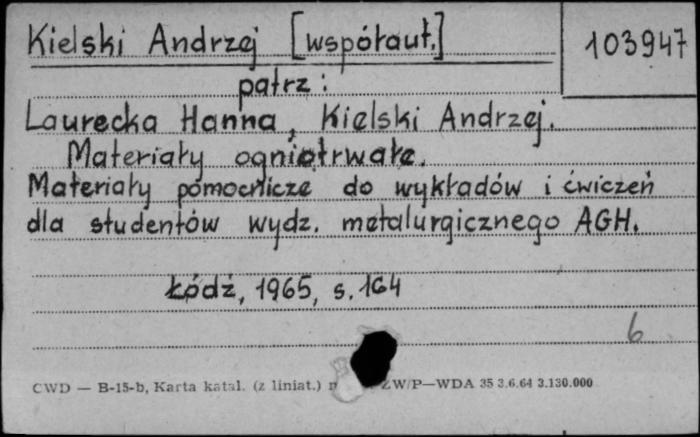 Kielski Andrzej [współaut.]
103947
patrz:
Laurecka Hanna, Kielski Andrzej.
Materiały ogniotrwałe.
Materiały pomocnicze do wykładów i ćwiczeń
dla studentów wydz. metalurgicznego AGH.
Łódź, 1965, s. 164
6
CWD — B-15-b, Karta katal. (z liniat.) ZW/P—WDA 35 3.6.64 3.130.000